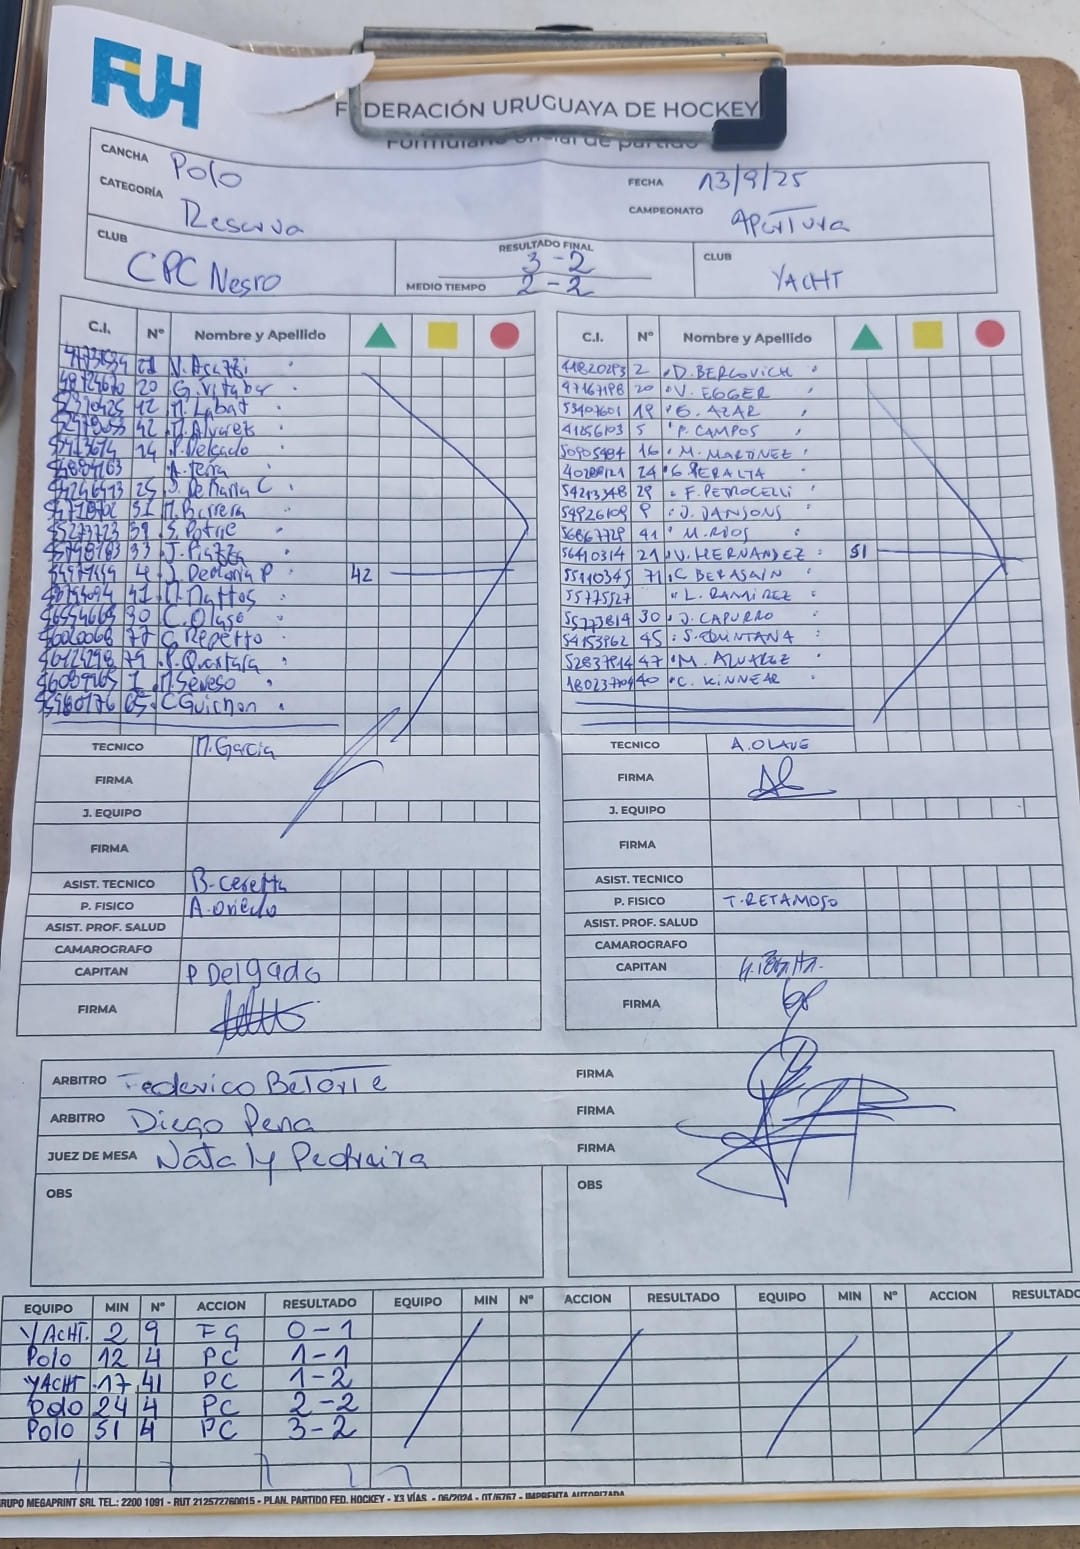 FUH
FEDERACIÓN URUGUAYA DE HOCKEY
Formulario oficial de partido
CANCHA Polo
FECHA 13/9/25
CATEGORÍA Reserva
CAMPEONATO Apertura
CLUB CPC Negro
RESULTADO FINAL 3-2
MEDIO TIEMPO 2-2
CLUB YACHT
C.I. Nº Nombre y Apellido
20 G. Vitaber
12 M. Labat
42 M. Alvarez
14 P. Delgado
25 J. De Maria C
31 M. Barrera
39 S. Potrie
33 J. Piazza
4 J. Demaria P 42
41 M. Mattos
30 C. Olaso
77 C. Repetto
79 P. Quartara
1 M. Seneso
65 C Guichon
TECNICO M. Garcia
FIRMA
J. EQUIPO
FIRMA
ASIST. TECNICO B. Ceretta
P. FISICO A. Oviedo
ASIST. PROF. SALUD
CAMAROGRAFO
CAPITAN P Delgado
FIRMA
C.I. Nº Nombre y Apellido
41820293 2 D. BERCOVICH
47167198 20 V. EGGER
53407601 19 G. AZAR
41256103 5 P. CAMPOS
50905484 16 M. MARTINEZ
24 G PERALTA
54213348 29 F. PETROCELLI
54926109 9 J. JANSONS
56867729 41 M. RIOS
56410314 21 V. HERNANDEZ 51
55110345 71 C BERASAIN
55775527 L. RAMIREZ
55773814 30 J. CAPURRO
54153962 45 S. QUINTANA
52837814 47 M. ALVAREZ
40 C. KINNEAR
TECNICO A. OLAVE
FIRMA
J. EQUIPO
FIRMA
ASIST. TECNICO
P. FISICO T. RETAMOSO
ASIST. PROF. SALUD
CAMAROGRAFO
CAPITAN
FIRMA
ARBITRO Federico Betorte FIRMA
ARBITRO Diego Pena FIRMA
JUEZ DE MESA Nataly Pedreira FIRMA
OBS OBS
EQUIPO MIN Nº ACCION RESULTADO EQUIPO MIN Nº ACCION RESULTADO EQUIPO MIN Nº ACCION RESULTADO
YACHT. 2 9 FG 0-1
Polo 12 4 PC 1-1
YACHT 17 41 PC 1-2
Polo 24 4 PC 2-2
Polo 51 4 PC 3-2
GRUPO MEGAPRINT SRL TEL.: 2200 1091 - RUT 212572760015 - PLAN. PARTIDO FED. HOCKEY - X3 VÍAS. - 06/2024 - OT/6767 - IMPRENTA AUTORIZADA